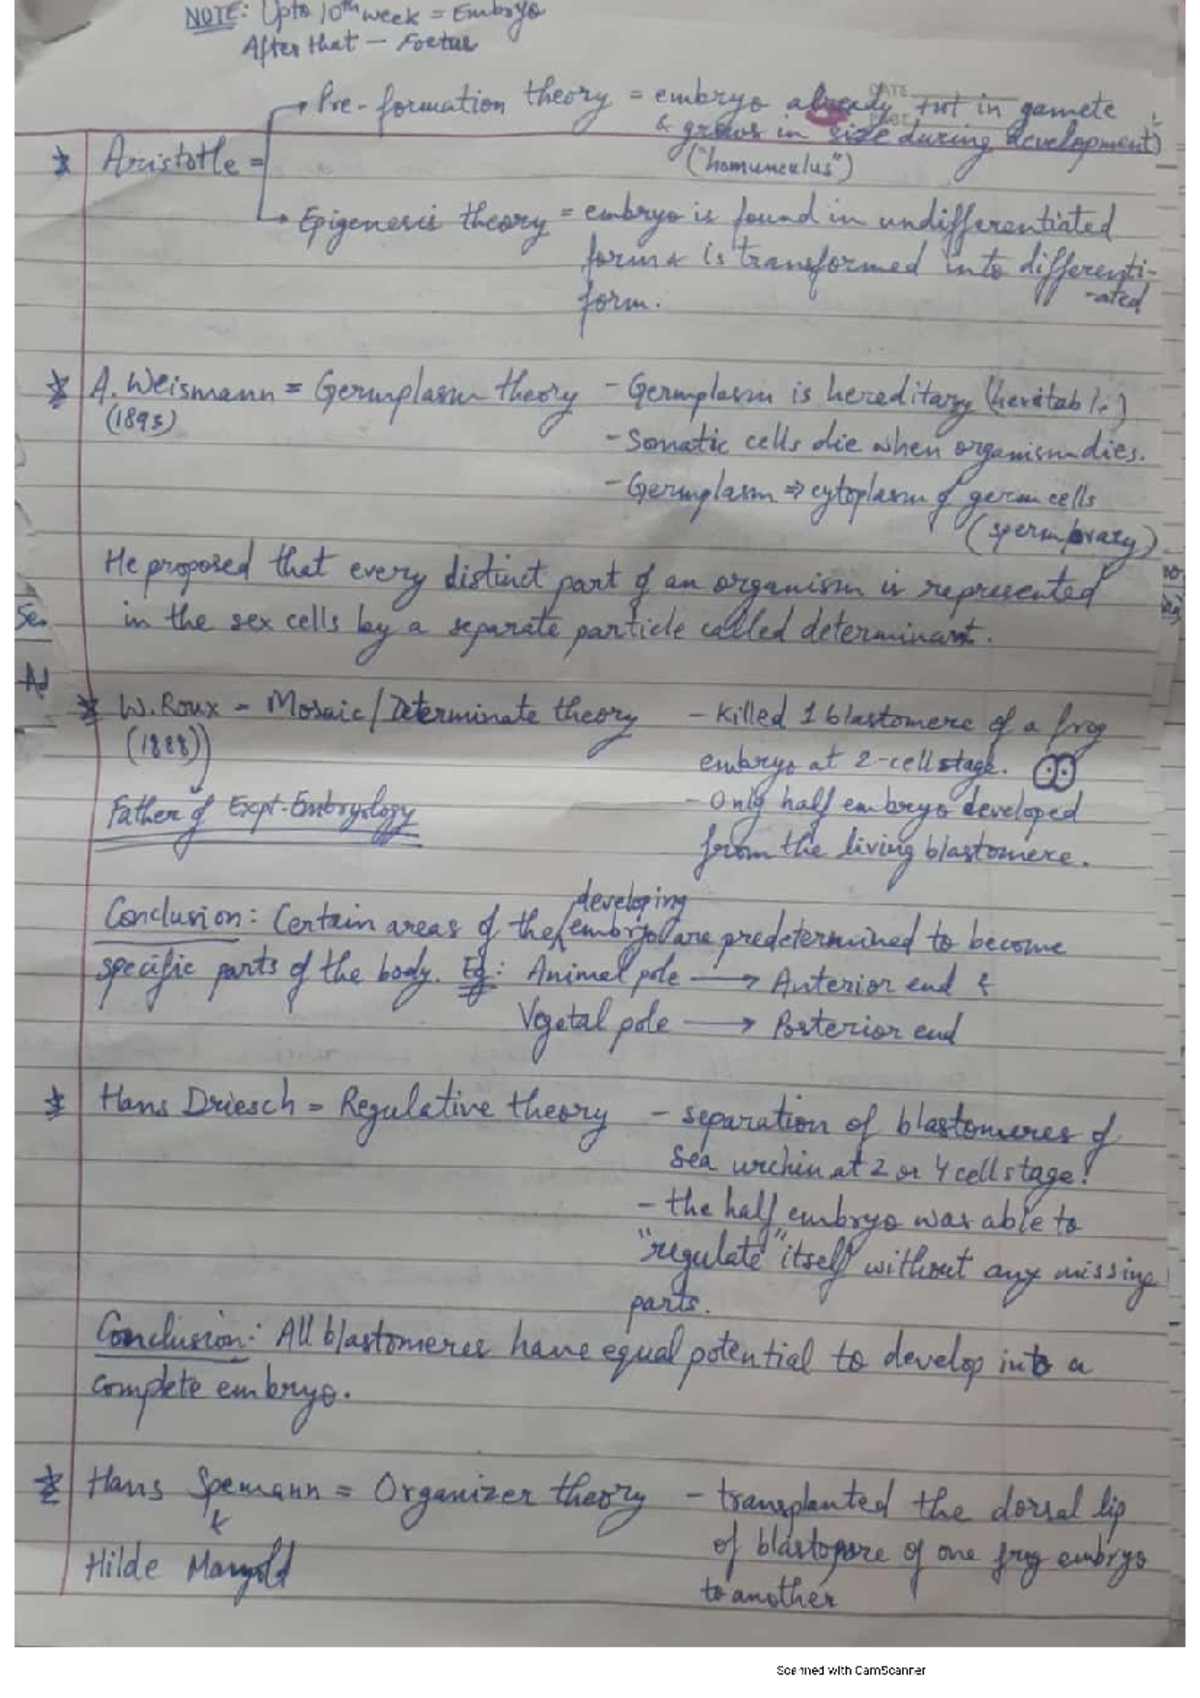 NOTE: Upto 10th week = Embryo
After that - Foetus
DATE
→ Pre-formation theory = embryo already in gamete
& grows in size during development)
("homunculus")
* Aristotle =
→ Epigenesis theory = embryo is found in undifferentiated
form & is transformed into differenti-
-ated
form.
* A. Weismann = Germplasm theory - Germplasm is hereditary (heritable)
(1893)
- Somatic cells die when organism dies.
- Germplasm ⇒ cytoplasm of germ cells
(sperm/ovary)
He proposed that every distinct part of an organism is represented
in the sex cells by a separate particle called determinant.
* W. Roux = Mosaic/Determinate theory - Killed 1 blastomere of a frog
(1888)
embryo at 2-cell stage.
Father of Expt-Embryology
- Only half embryo developed
from the living blastomere.
Conclusion: Certain areas of the developing embryo are predetermined to become
specific parts of the body. Eg: Animal pole → Anterior end &
Vegetal pole → Posterior end
* Hans Driesch = Regulative theory - separation of blastomeres of
sea urchin at 2 or 4 cell stage.
- the half embryo was able to
"regulate" itself without any missing
parts.
Conclusion: All blastomeres have equal potential to develop into a
complete embryo.
* Hans Spemann = Organizer theory - transplanted the dorsal lip
&
of blastopore of one frog embryo
Hilde Mangold
to another
Scanned with CamScanner